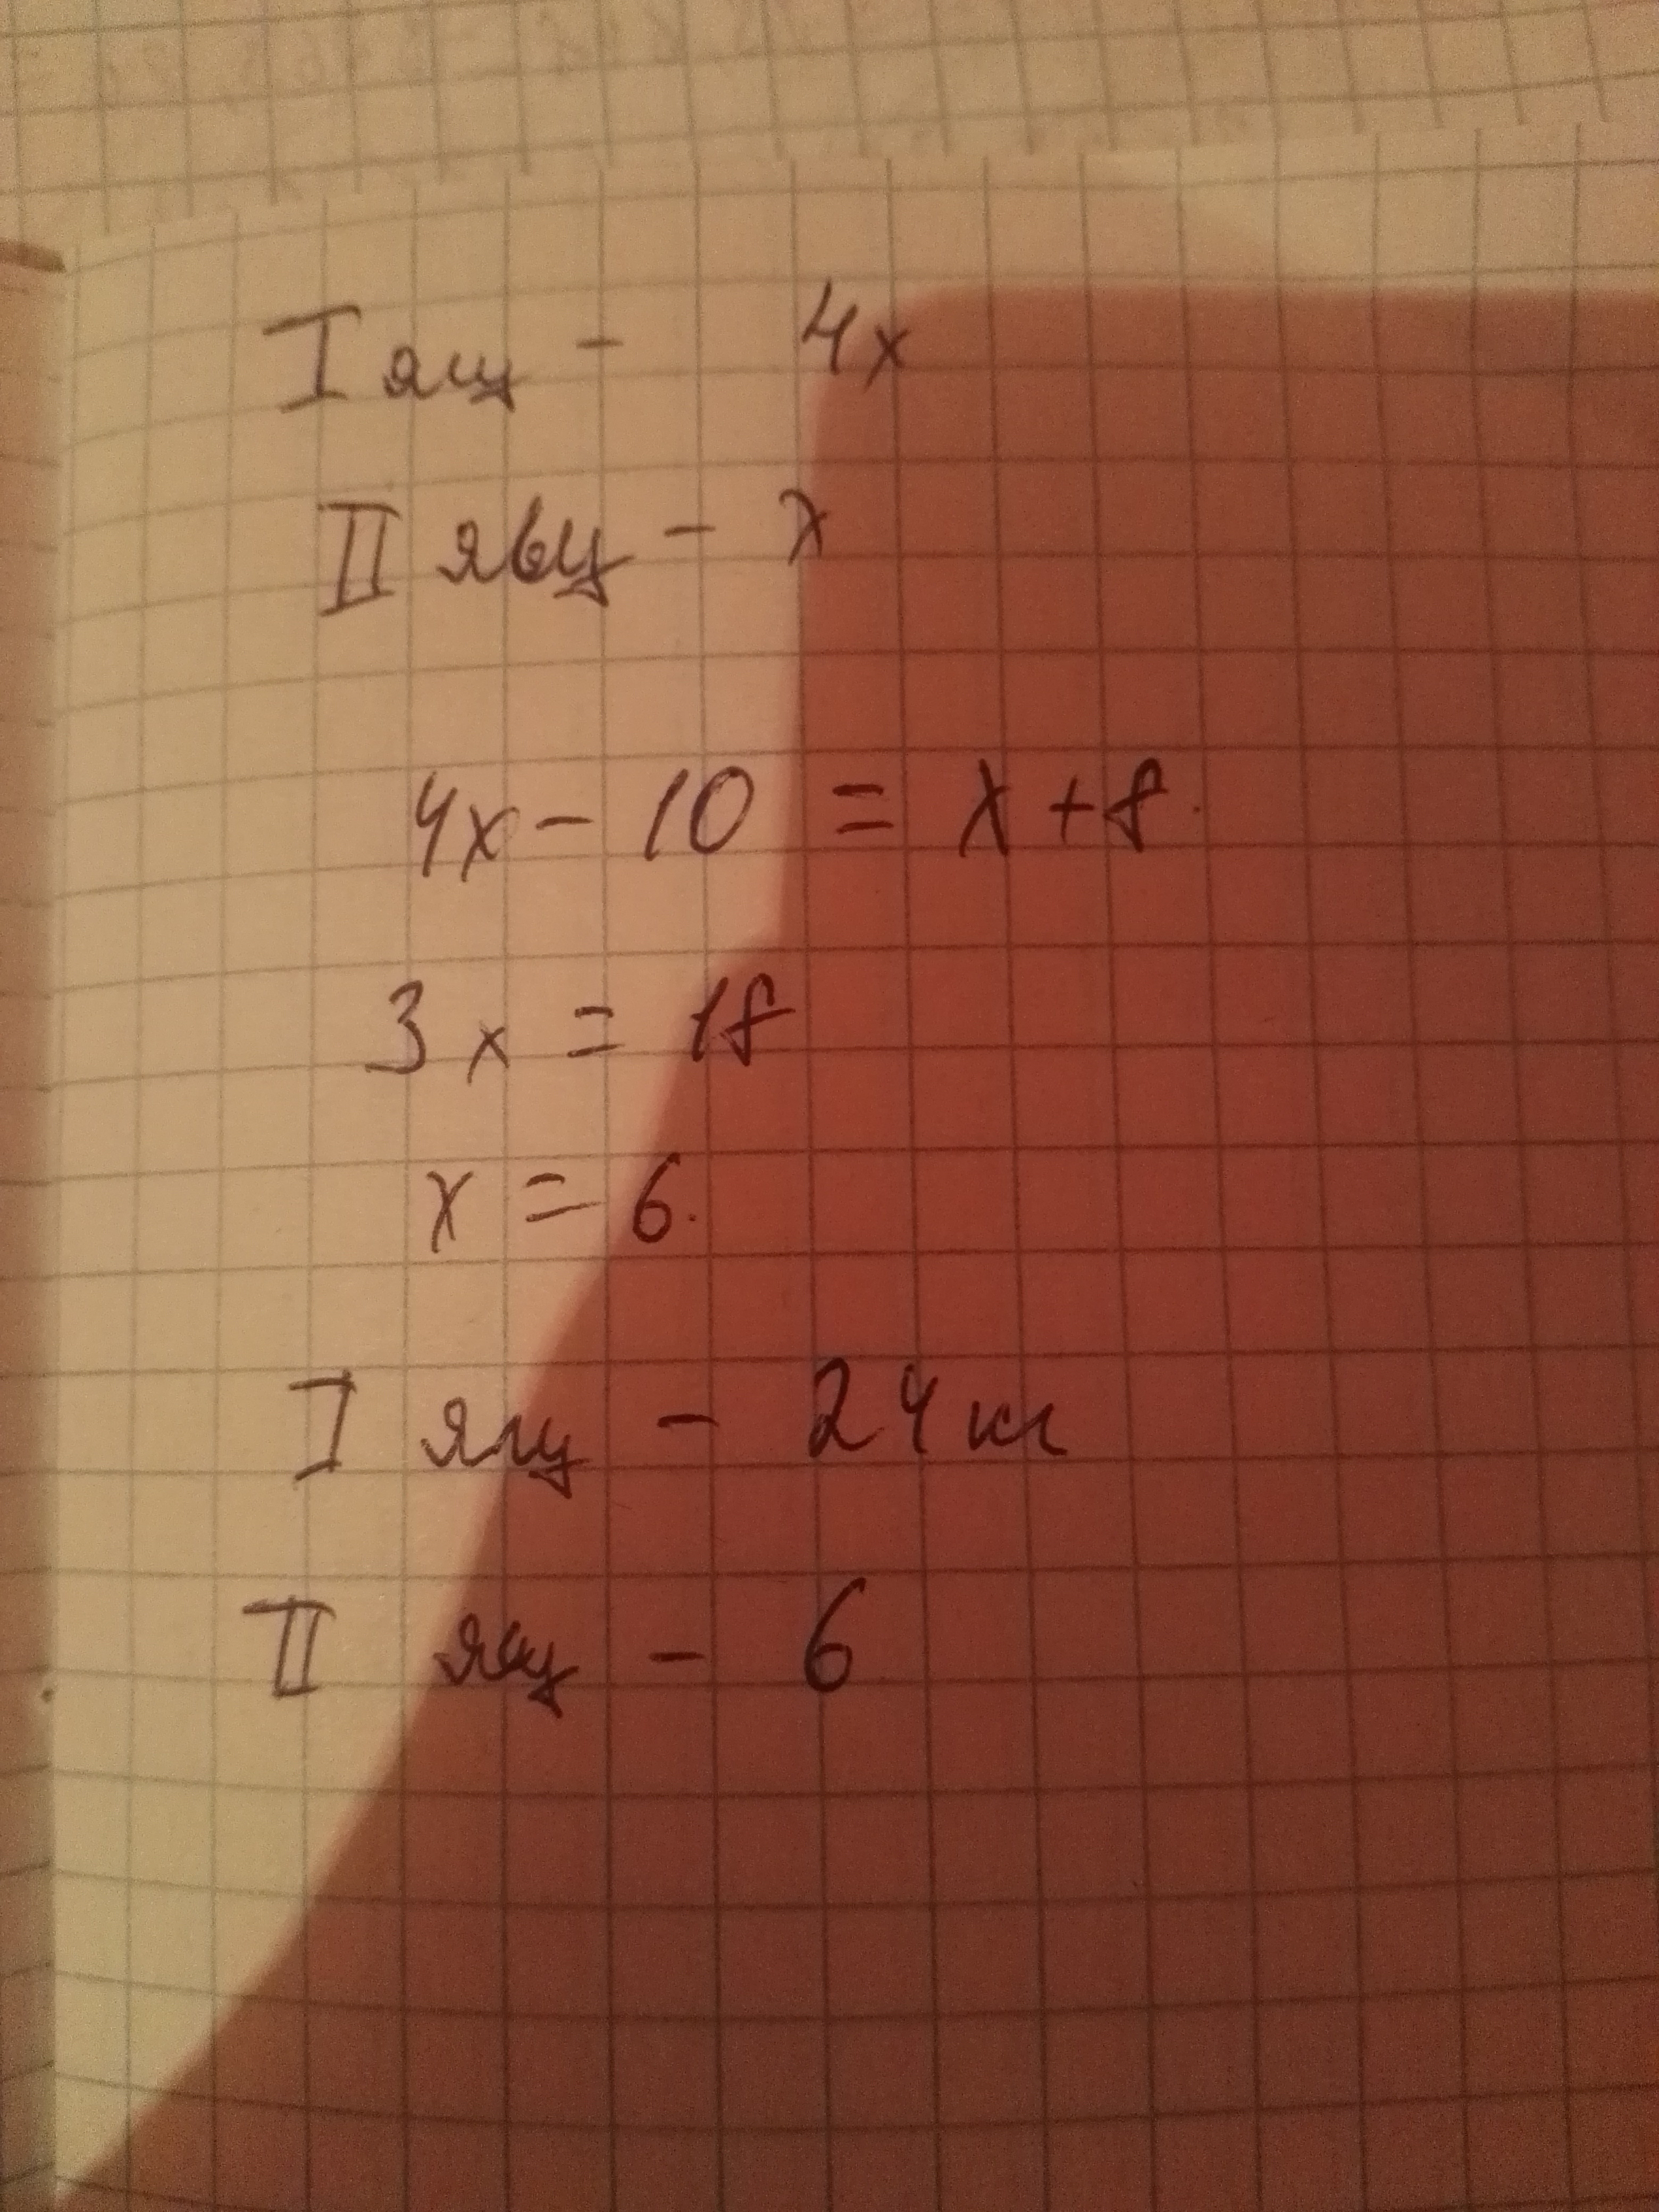 I ящ - 4x
II ящ - x
4x - 10 = x + 8.
3x = 18
x = 6.
I ящ - 24 кг
II ящ - 6